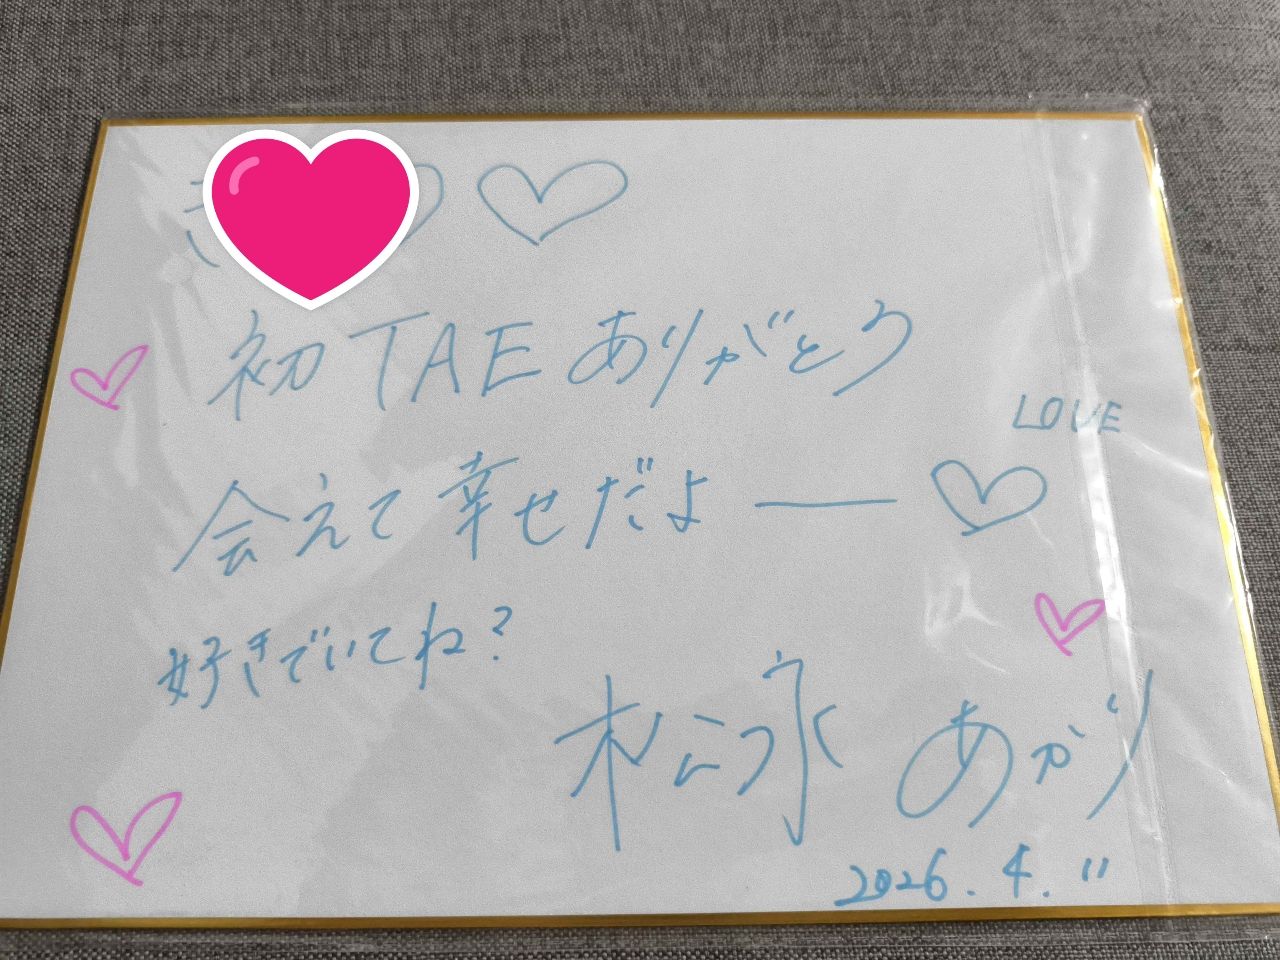 初TAEありがとう
LOVE
会えて幸せだよー
好きでいてね?
松永 あかり
2026.4.11